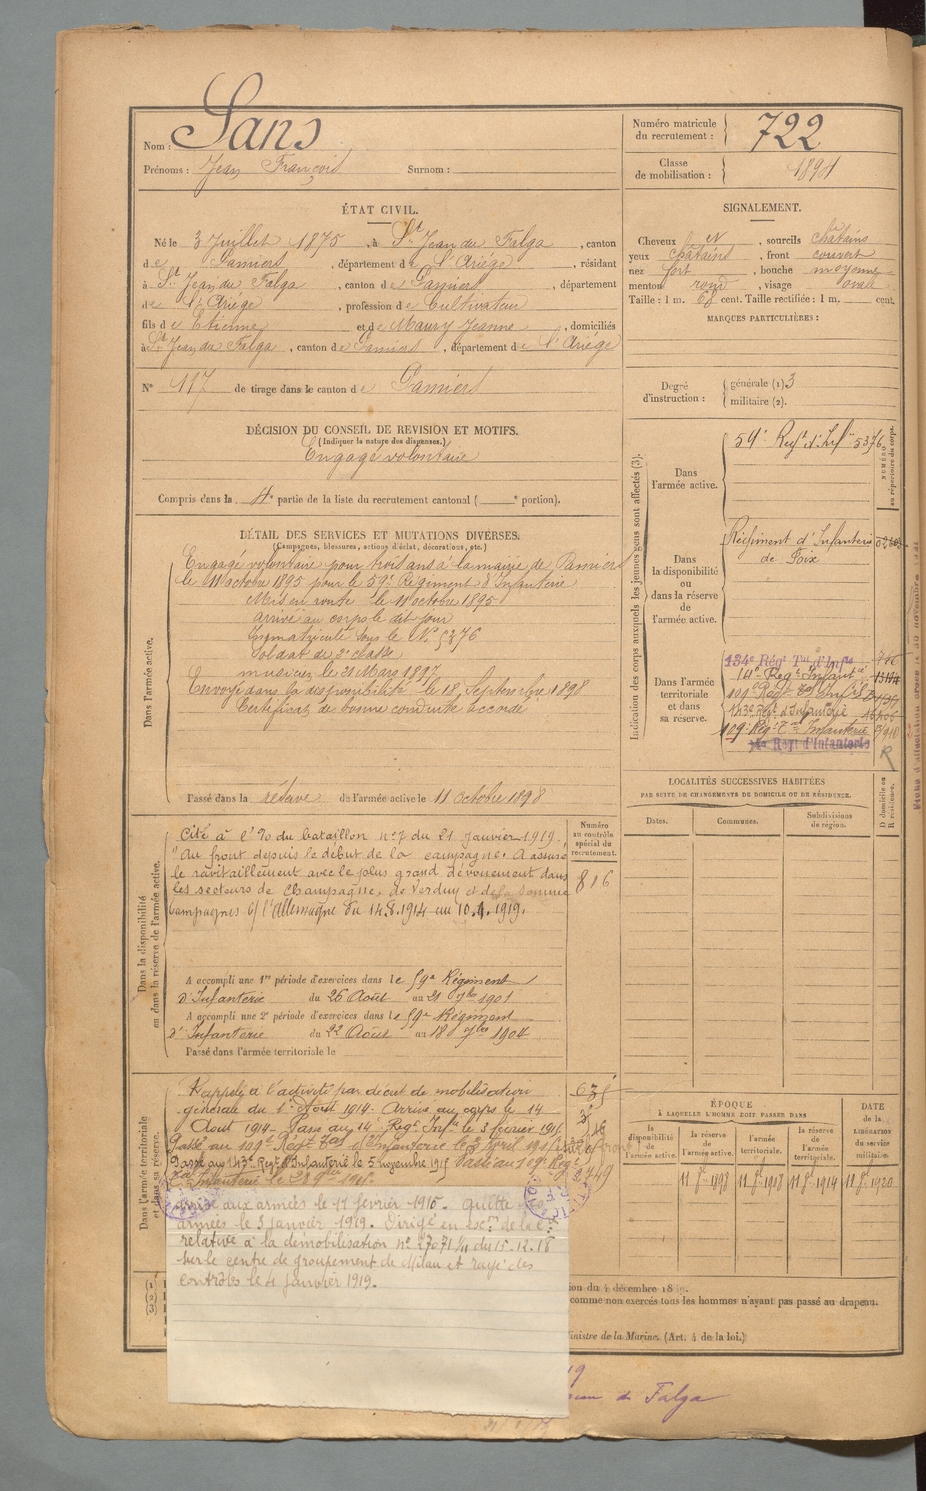 Nom : Sans
Prénoms : Jean François Surnom :
Numéro matricule du recrutement : 722
Classe de mobilisation : 1894
ÉTAT CIVIL.
Né le 3 Juillet 1875, à St Jean du Falga, canton
de Pamiers, département de l'Ariège, résidant
à St Jean du Falga, canton de Pamiers, département
de l'Ariège, profession de Cultivateur
fils de Etienne et de Maury Jeanne, domiciliés
à St Jean du Falga, canton de Pamiers, département de l'Ariège
N° 117 de tirage dans le canton de Pamiers
SIGNALEMENT.
Cheveux et, sourcils châtains
yeux châtains, front couvert
nez fort, bouche moyenne
menton rond, visage ovale
Taille : 1 m. 68 cent. Taille rectifiée : 1 m. cent.
MARQUES PARTICULIÈRES :
Degré d'instruction : générale (1) 3
militaire (2).
DÉCISION DU CONSEIL DE REVISION ET MOTIFS.
(Indiquer la nature des dispenses.)
Engagé volontaire
Compris dans la 4e partie de la liste du recrutement cantonal ( e portion).
DÉTAIL DES SERVICES ET MUTATIONS DIVERSES.
(Campagnes, blessures, actions d'éclat, décorations, etc.)
Dans l'armée active.
Engagé volontaire pour trois ans à la mairie de Pamiers
le 11 octobre 1895 pour le 59e Régiment d'Infanterie
Mis en route le 11 octobre 1895
arrivé au corps le dit jour
Immatriculé sous le N° 5376
Soldat de 2e classe
musicien le 21 Mars 1897
Envoyé dans la disponibilité le 18 Septembre 1898
Certificat de bonne conduite accordé
Passé dans la réserve de l'armée active le 11 octobre 1898
Indication des corps auxquels les jeunes gens sont affectés (3).
NUMÉRO au répertoire du corps.
Dans l'armée active.
59e Regt d'Infie 5376
Dans la disponibilité ou dans la réserve de l'armée active.
Régiment d'Infanterie
de Foix
Dans l'armée territoriale et dans sa réserve.
134e Régt Tal d'Infie
14e Regt Infanterie
109e Regt Tal Infie
143e Regt d'Infanterie
109e Reg. Tal Infanterie
14e Regt d'Infanterie
R
LOCALITÉS SUCCESSIVES HABITÉES
PAR SUITE DE CHANGEMENTS DE DOMICILE OU DE RÉSIDENCE.
Dates. Communes. Subdivisions de région. D domicile ou R résidence.
Dans la disponibilité ou dans la réserve de l'armée active.
Numéro au contrôle spécial du recrutement.
816
Cité à l'O du bataillon n° 7 du 21 Janvier 1919.
"Au front depuis le début de la campagne. A assuré
le ravitaillement avec le plus grand dévouement dans
les secteurs de Champagne, de Verdun et de la Somme
Campagnes c/ l'Allemagne du 14.8.1914 au 10.1.1919.
A accompli une 1re période d'exercices dans le 59e Régiment
d'Infanterie du 26 Août au 21 7bre 1901
A accompli une 2e période d'exercices dans le 59e Régiment
d'Infanterie du 22 Août au 18 7bre 1904
Passé dans l'armée territoriale le
Dans l'armée territoriale et dans sa réserve.
Rappelé à l'activité par décret de mobilisation
générale du 1er Août 1914. Arrivé au corps le 14
Août 1914. Passé au 14e Regt Infie le 3 février 1915
Passé au 109e Régt Tal d'Infanterie le 2 Avril 1915
Passé au 143e Regt d'Infanterie le 5 novembre 1915 Passé au 109e Regt
Tal Infanterie le
aux armées le 11 février 1915. Quitte
armées le 3 janvier 1919. Dirigé en exon de la
relative à la démobilisation n° 27071 1/11 du 15.12.18
sur le centre de groupement de Milan et rayé des
contrôles le 4 janvier 1919.
ÉPOQUE
À LAQUELLE L'HOMME DOIT PASSER DANS
la disponibilité de l'armée active. la réserve de l'armée active. l'armée territoriale. la réserve de l'armée territoriale.
DATE de la LIBÉRATION du service militaire.
11 8bre 1898 11 8bre 1908 11 8bre 1914 11 8bre 1920
(1)
(2)
(3)
du 4 décembre 18
comme non exercés tous les hommes n'ayant pas passé au drapeau.
Ministre de la Marine. (Art. 4 de la loi.)
Falga